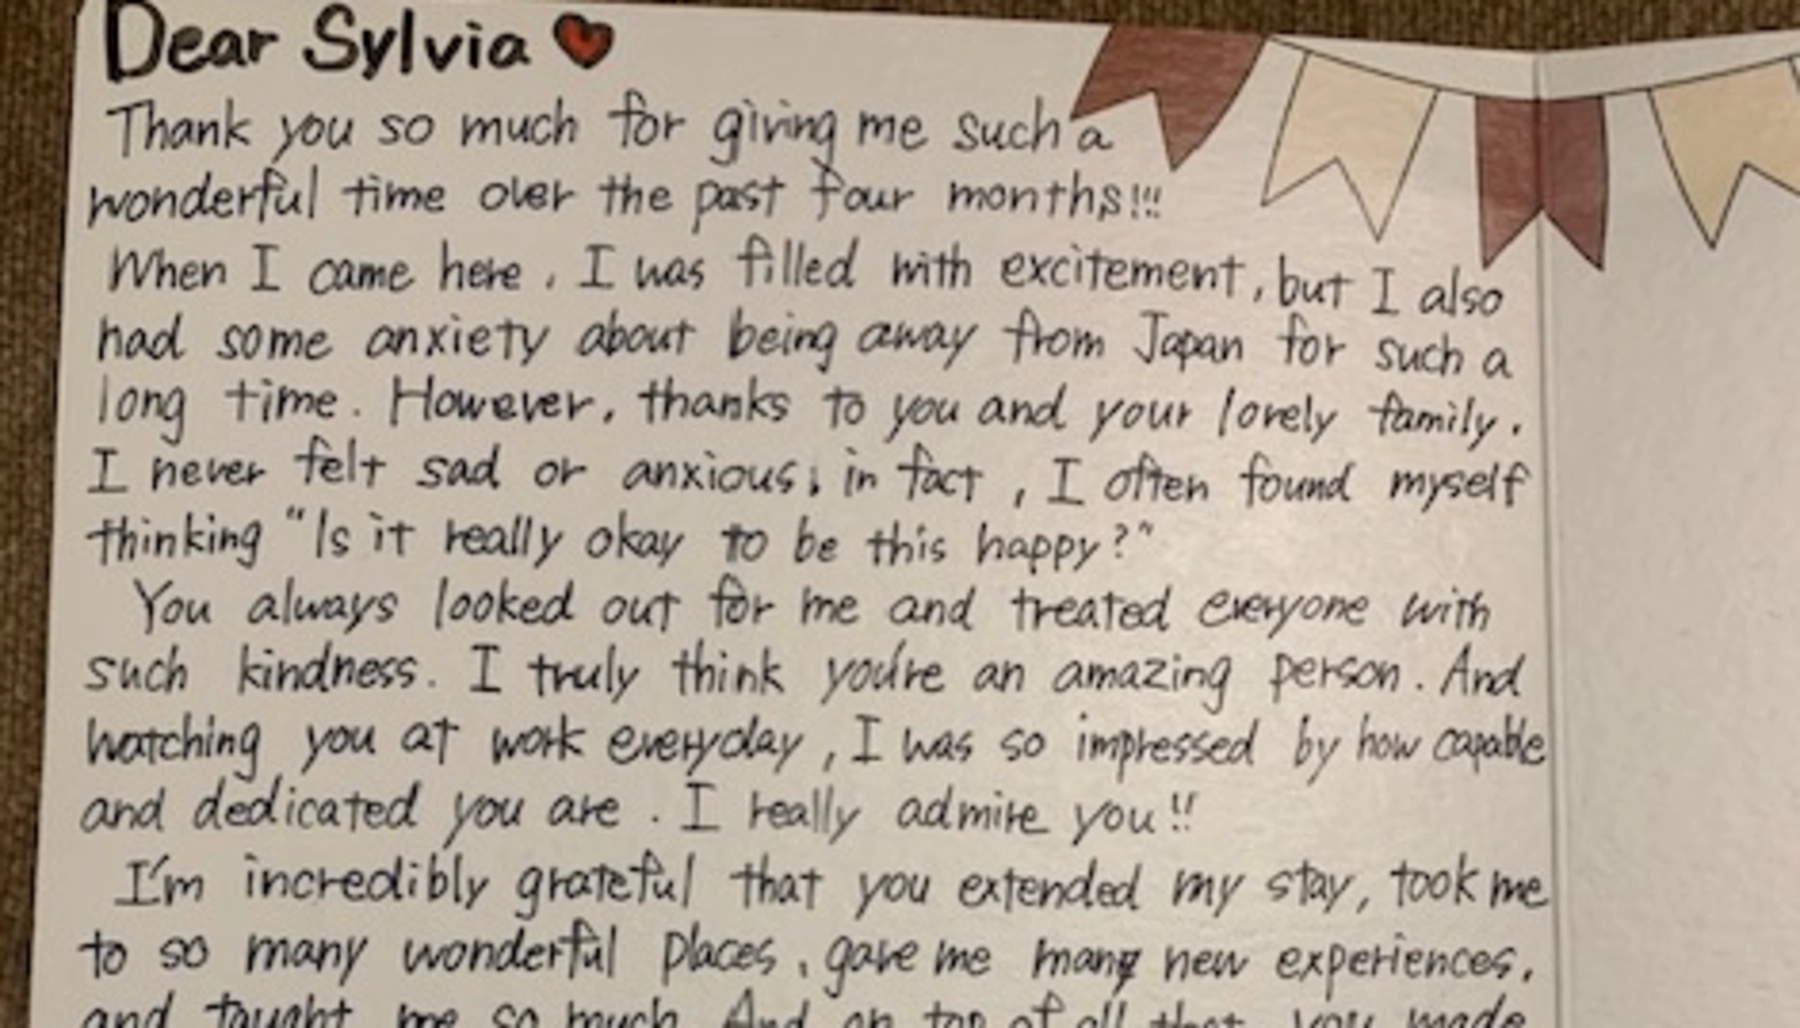 Dear Sylvia
Thank you so much for giving me such a
wonderful time over the past four months!!!
When I came here, I was filled with excitement, but I also
had some anxiety about being away from Japan for such a
long time. However, thanks to you and your lovely family,
I never felt sad or anxious; in fact, I often found myself
thinking "Is it really okay to be this happy?"
You always looked out for me and treated everyone with
such kindness. I truly think you're an amazing person. And
watching you at work everyday, I was so impressed by how capable
and dedicated you are. I really admire you!!
I'm incredibly grateful that you extended my stay, took me
to so many wonderful places, gave me many new experiences,
and taught me so much. And on top of all that, you made